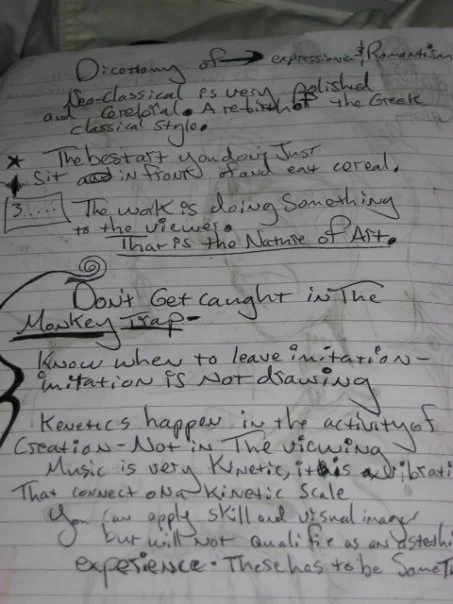 Dicotomy of → expressionism & Romantism
Neo-classical is very polished
and Cerebral. A rebirth of the Greek
classical style.
* The best art you don't Just
Sit in front of and eat cereal.
3.... The work is doing Something
to the viewer.
That is the Nature of Art.
Don't Get caught in The
Monkey Trap-
Know when to leave imitation-
imitation is Not drawing
Kenetics happen in the activity of
Creation-Not in The viewing
Music is very Kinetic, it is a vibrati
That connect on a Kinetic Scale
You can apply skill and visual images
but will not qualifie as an
experience. These has to be Somet